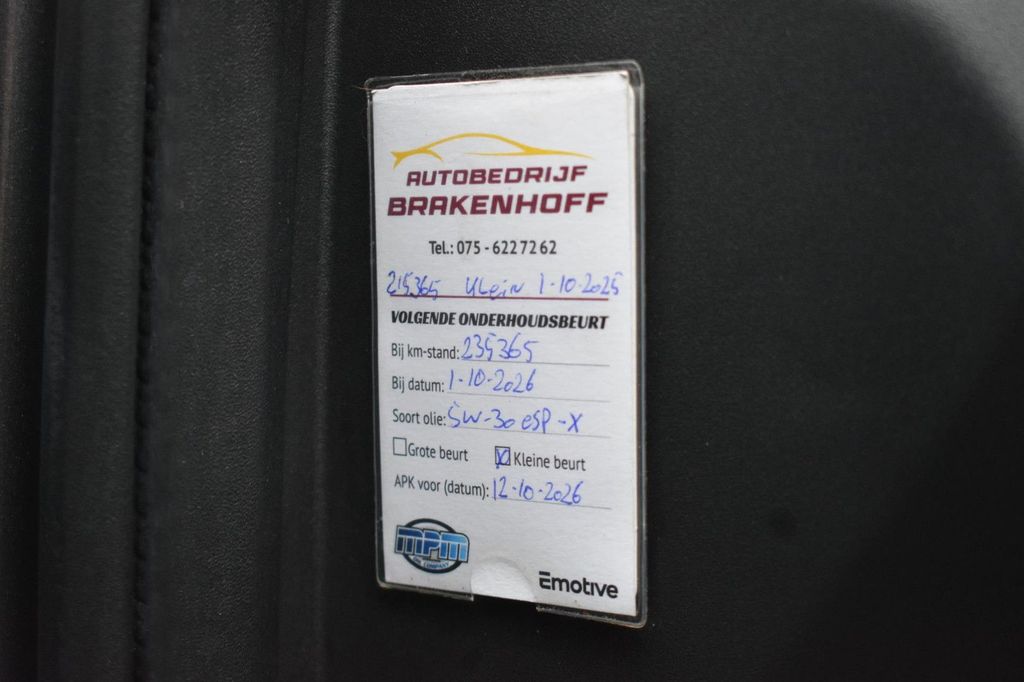 AUTOBEDRIJF
BRAKENHOFF
Tel.: 075 - 6227262
215365 Klein 1-10-2025
VOLGENDE ONDERHOUDSBEURT
Bij km-stand: 235365
Bij datum: 1-10-2026
Soort olie: 5W-30 ESP-X
Grote beurt Kleine beurt
APK voor (datum): 12-10-2026
MPM
OIL COMPANY
Emotive